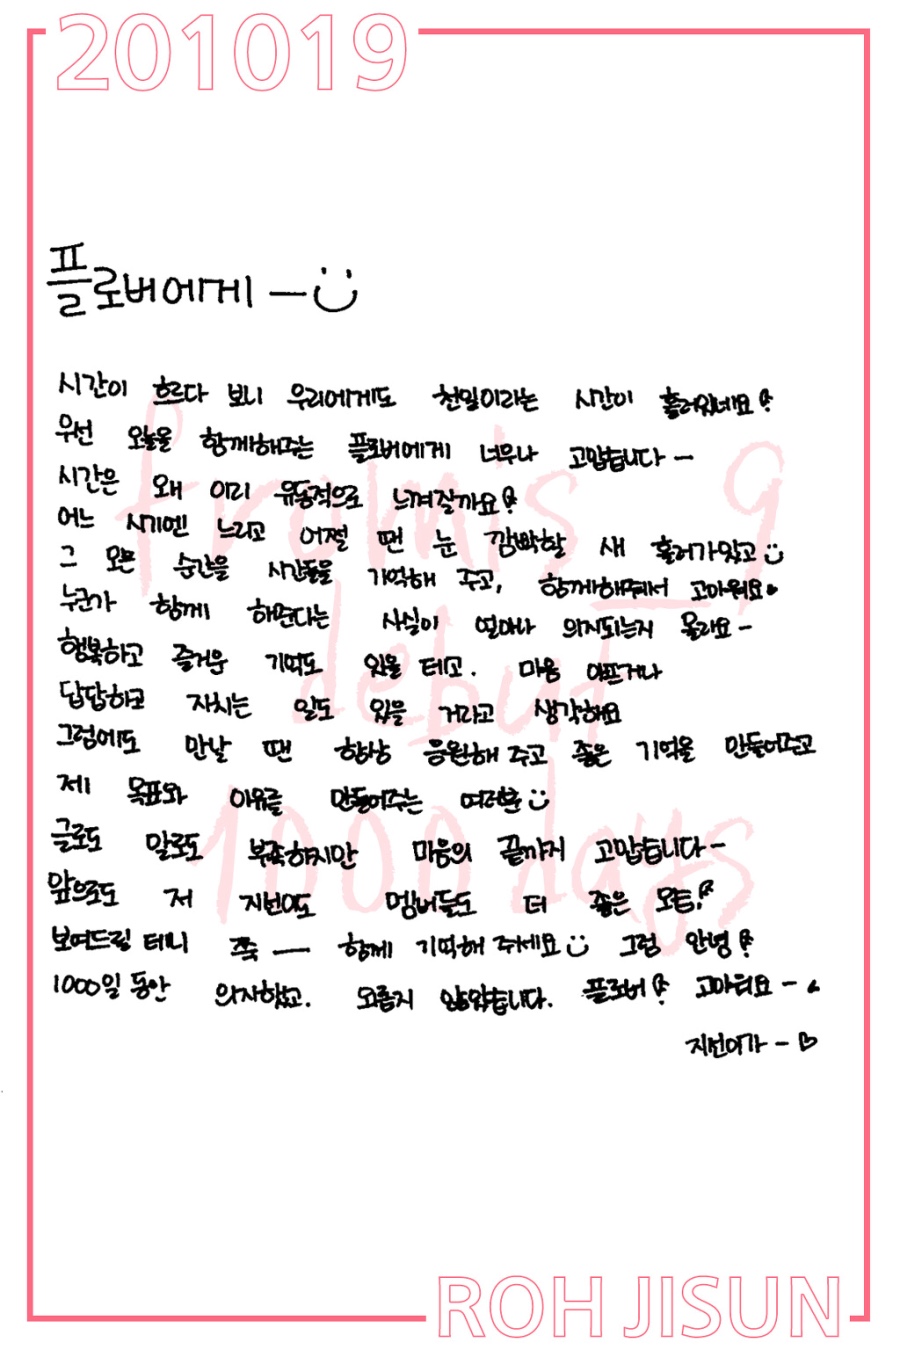 201019
플로버에게 —
시간이 흐르다 보니 우리에게도 천일이라는 시간이 흘러왔네요!
우선 오늘을 함께해주는 플로버에게 너무나 고맙습니다 —
시간은 왜 이리 유동적으로 느껴질까요?
어느 시기엔 느리고 어쩔 땐 눈 깜빡할 새 흘러가있고
그 모든 순간을 시간들을 기억해 주고, 함께해줘서 고마워요.
누군가 함께 해준다는 사실이 얼마나 의지되는지 몰라요 —
행복하고 즐거운 기억도 있을 테고. 마음 아프거나
답답하고 지치는 일도 있을 거라고 생각해요
그럼에도 만날 땐 항상 응원해 주고 좋은 기억을 만들어주고
제 목표와 이유를 만들어주는 여러분
글로도 말로도 부족하지만 마음의 끝까지 고맙습니다 —
앞으로도 저 지선이도 멤버들도 더 좋은 모습!
보여드릴 테니 쭉 — 함께 기억해 주세요 그럼 안녕!
1000일 동안 의지했고. 외롭지 않았습니다. 플로버! 고마워요 —
지선이가 — ♡
fromis_9
debut
1000 days
ROH JISUN